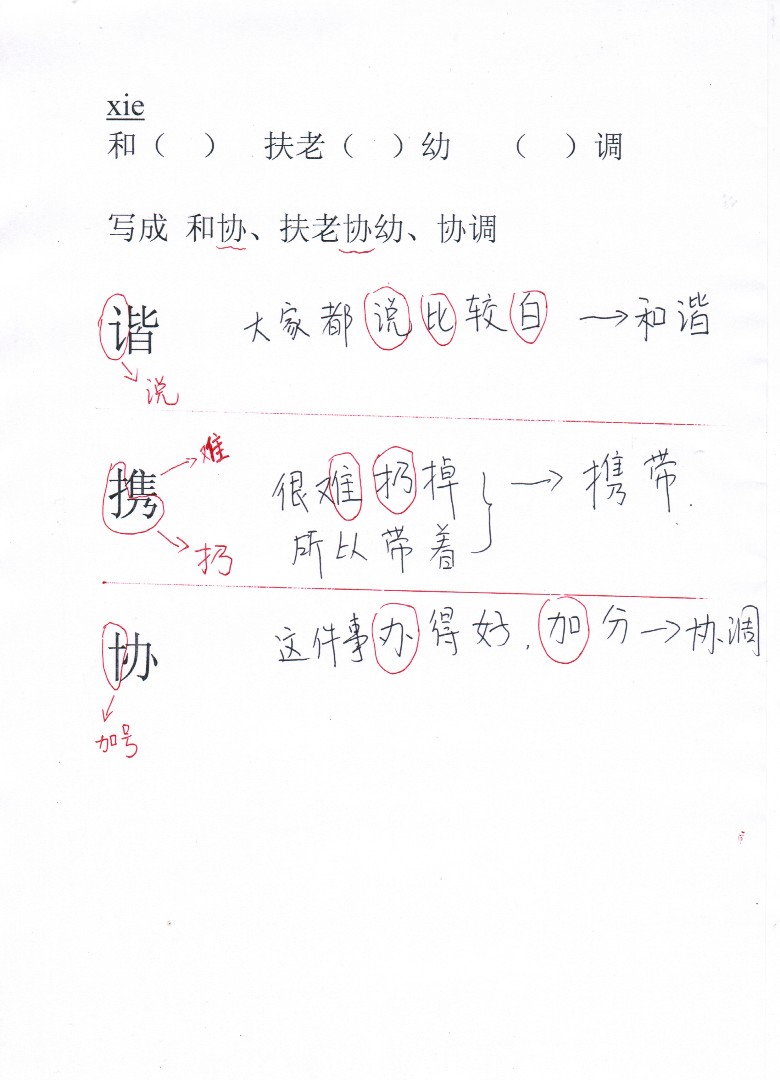 xie
和（ ） 扶老（ ）幼 （ ）调
写成 和协、扶老协幼、协调
谐 大家都说比较白 →和谐
→说
携 →难 很难扔掉 → 携带.
→扔 所以带着
协 这件事办得好,加分→协调
加号